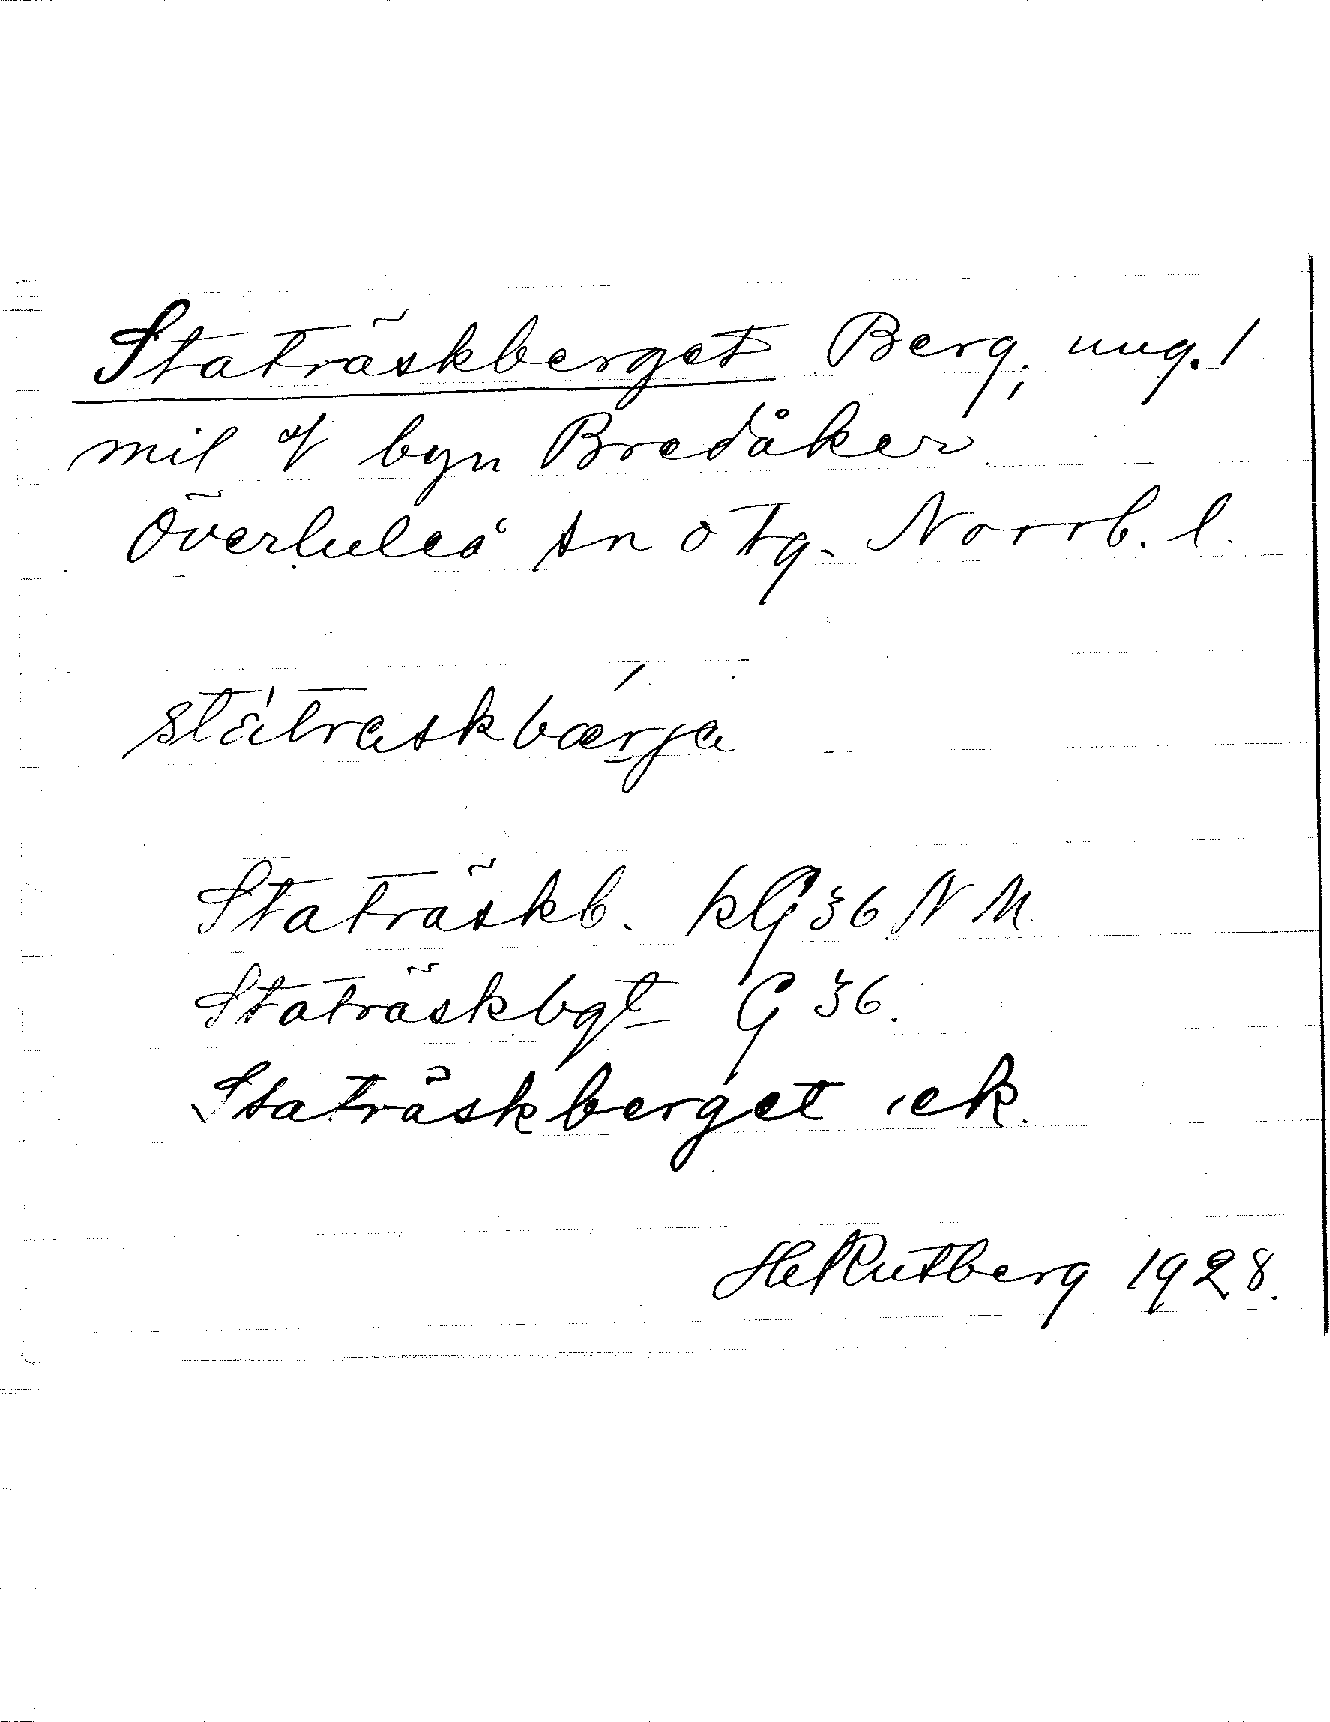 Staträskberget Berg; ung. 1
mil V byn Bredåker
Överluleå sn o tg. Norrb. l.
státraskbærja
Staträskb. kG 36 NM
Staträskbgt G 36.
Staträskberget ek.
Rutberg 1928.